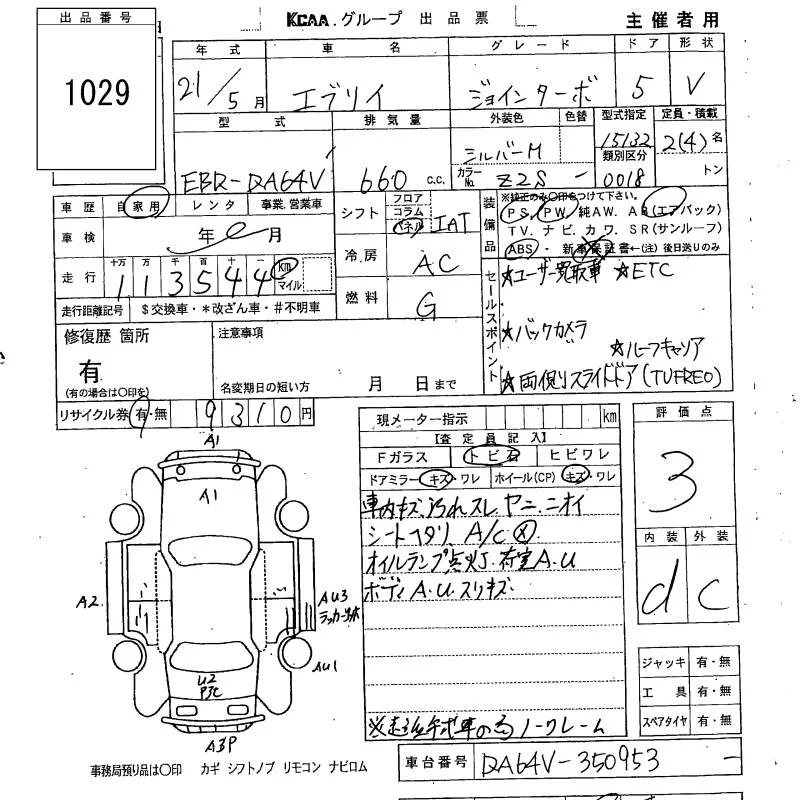 出品番号
1029
KCAA.グループ 出品票
主催者用
年式 車名 グレード ドア 形状
21/5月 エブリイ ジョインターボ 5 V
型式 排気量 外装色 色替 型式指定 定員・積載
EBD-DA64V 660 c.c. シルバーM 15132 2(4)名
カラーNo. Z2S - 類別区分 0018 トン
車歴 自家用 レンタ 事業.営業車
シフト フロア コラム パネル IAT
装備品 ※純正のみ○印をつけて下さい。
PS, PW, 純AW. A.B(エアバック)
TV. ナビ. カワ. SR(サンルーフ)
ABS・新車保証書←(注)後日送りのみ
車検 年 月
冷房 AC
走行 十万 万 千 百 十 一
113544 km マイル
燃料 G
走行距離記号 $交換車・*改ざん車・#不明車
セールスポイント
★ユーザー買取車 ★ETC
★バックカメラ
★ルーフキャリア
★両側スライドドア(TUFREO)
修復歴 箇所
有
(有の場合は○印を)
注意事項
名変期日の短い方 月 日まで
リサイクル券 有・無 9310円
現メーター指示 km
評価点
3
【査定員記入】
Fガラス トビ石 ヒビワレ
ドアミラー キズ・ワレ ホイール(CP) キズ・ワレ
車内キズ.汚れスレ.ヤニ.ニオイ
シートヘタリ. A/C ×
オイルランプ点灯. 荷室A.U
ボディA.U.スリキズ.
内装 外装
d c
A1
A1
A2
AU3
AU1
U2
A3P
ジャッキ 有・無
工具 有・無
スペアタイヤ 有・無
ノークレーム
事務局預り品は○印 カギ シフトノブ リモコン ナビロム
車台番号 DA64V-350953 -